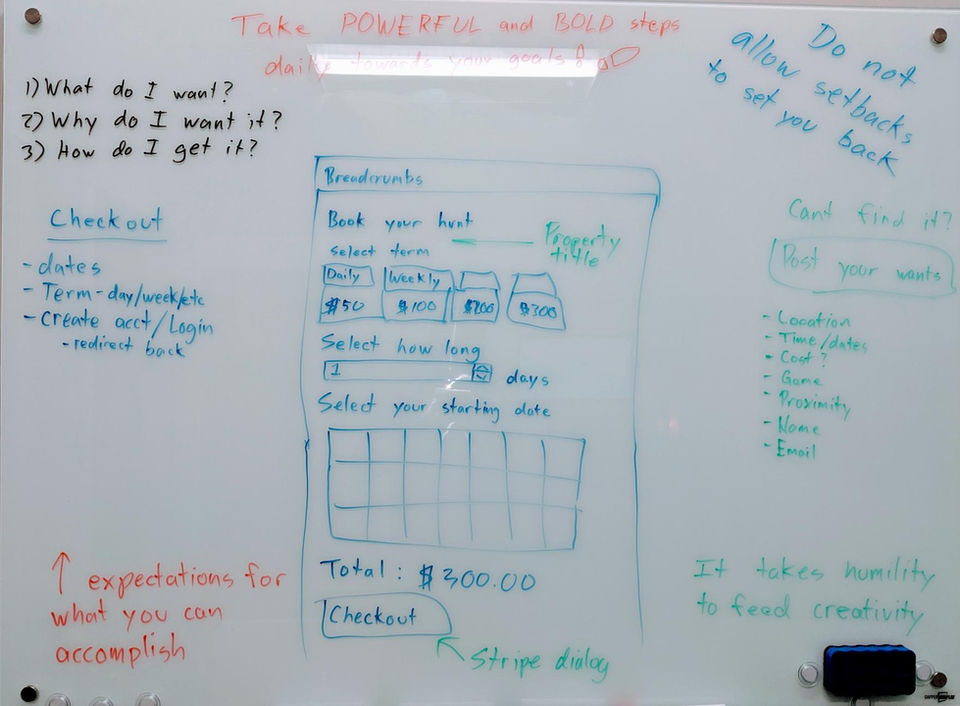 Take POWERFUL and BOLD steps
daily towards your goals!
Do not
allow setbacks
to set you back
1) What do I want?
2) Why do I want it?
3) How do I get it?
Checkout
- dates
- Term - day/week/etc
- Create acct/Login
- redirect back
Breadcrumbs
Book your hunt
Property
title
Select term
Daily Weekly
$50 $100 $200 $300
Select how long
1 days
Select your starting date
Total: $300.00
Checkout
Stripe dialog
Cant find it?
Post your wants
- Location
- Time/dates
- Cost?
- Game
- Proximity
- Name
- Email
↑ expectations for
what you can
accomplish
It takes humility
to feed creativity